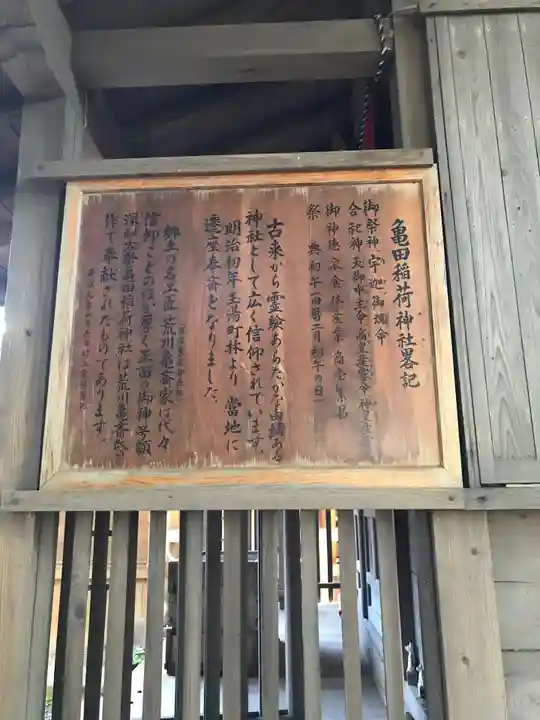 亀田稲荷神社畧記
御祭神 宇迦御魂命
合祀神 天御中主命 高皇産霊命 神皇産霊命
御神徳 衣食住 産業
祭典 初午 旧暦二月初午の日
古来から霊験あらたかな由緒ある
神社として広く信仰されています。
明治初年玉湯町林より当地に
遷座奉斎となりました。
郷土の名工匠荒川亀斎家は代々
信仰ことのほか厚く正面の御神号額
深彫大亀亀田稲荷神社は荒川亀斎氏の
作で奉献されたものであります。